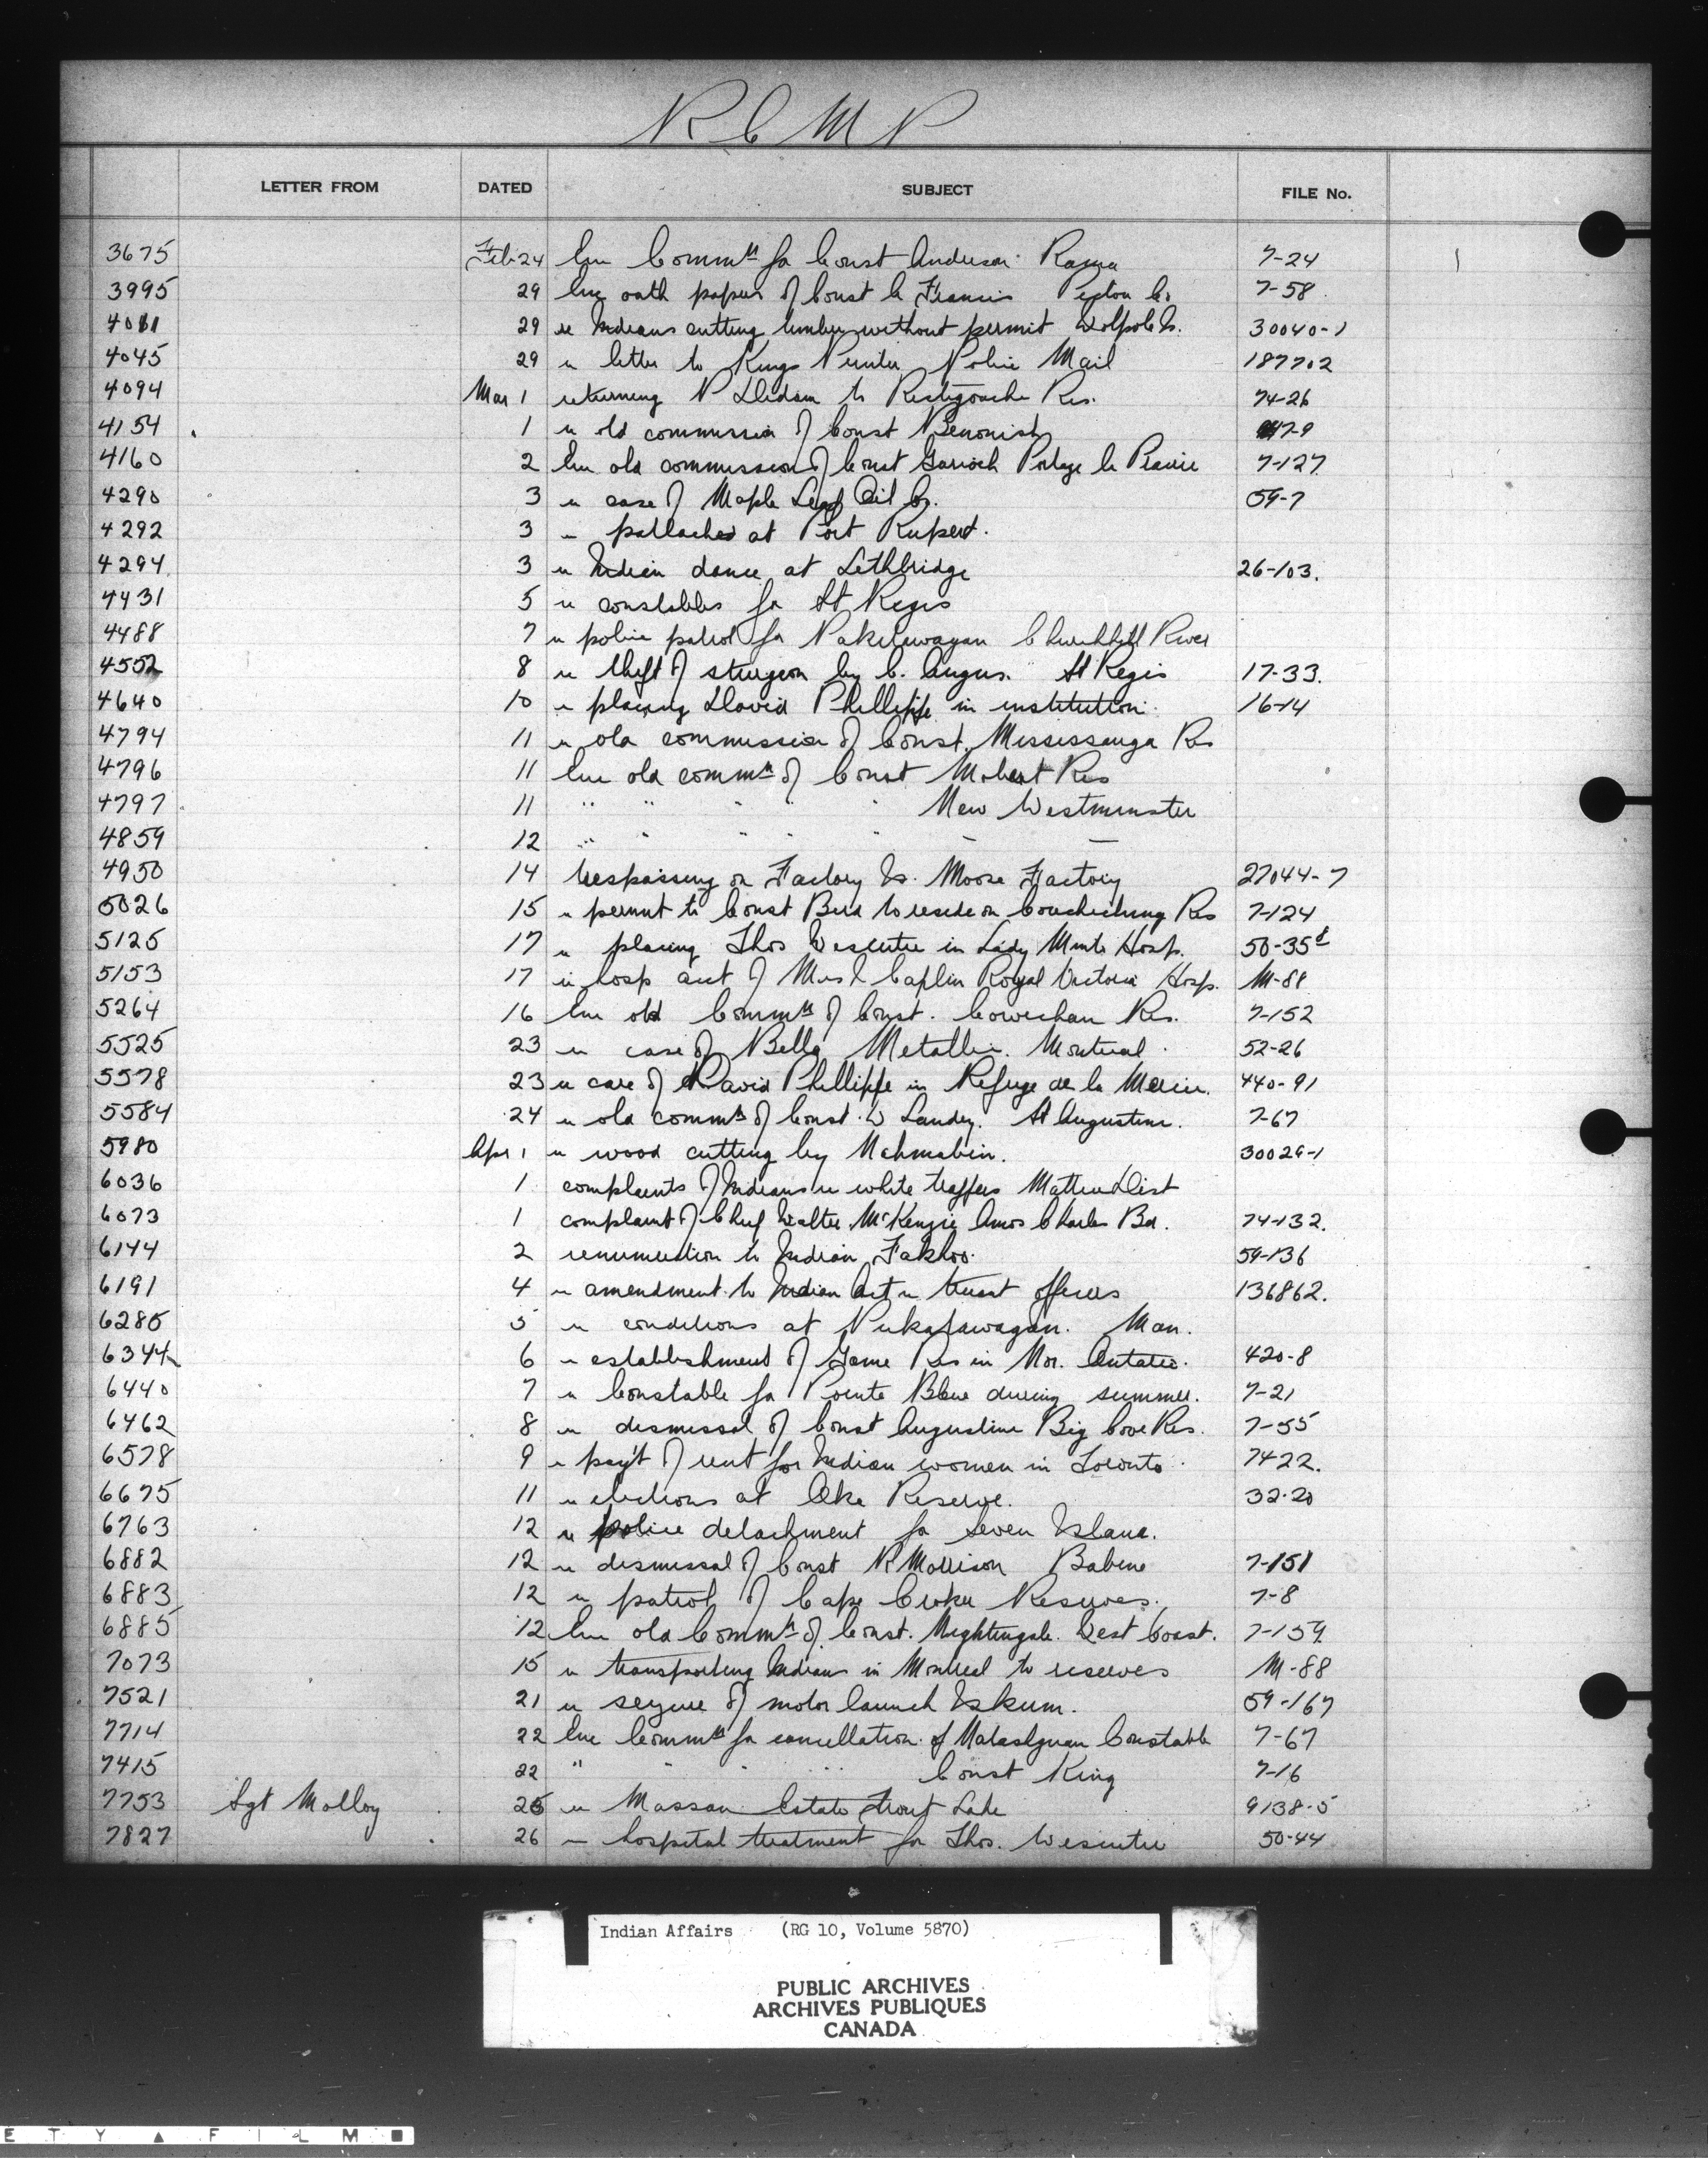 R C M P
LETTER FROM DATED SUBJECT FILE No.
3675 Feb 24 Enc Commn for Const Anderson Rama 7-24
3995 29 Enc oath papers of Const C Francis Pictou Co. 7-58
4011 29 re Indians cutting timber without permit Walpole Is. 30040-1
4045 29 re letter to Kings Printer Police Mail 187702
4094 Mar 1 returning P to Restigouche Res. 74-26
4154 1 re old commission of Const Penonish 7-9
4160 2 Enc old commission of Const Garrioch Portage la Prairie 7-127
4290 3 re case of Maple Leaf Oil Co. 59-7
4292 3 " potlaches at Fort Rupert.
4294 3 re Indian dance at Lethbridge 26-103.
4431 5 re constables for St Regis
4488 7 re police patrol for Churchill River
4552 8 re theft of sturgeon by C. Angus. St Regis 17-33.
4640 10 re placing David Phillippe in institution. 16-14
4794 11 re old commission of Const. Mississauga Res
4796 11 Enc old commn of Const Mobert Res
4797 11 " " " " " New Westminster
4859 12 " " " " " — —
4950 14 trespassing on Factory Is. Moose Factory 27044-7
5026 15 re permit to Const Bird to reside on Couchiching Res 7-124
5125 17 re placing Thos Wescutie in Lady Minto Hosp. 50-35
5153 17 re hosp acct of Caplin Royal Victoria Hosp. M-88
5264 16 Enc old Commn of Const. Cowichan Res. 7-152
5525 23 re case of Bella Metallic. Montreal. 52-26
5578 23 re care of David Phillippe in Refuge de la Merci. 440-91
5584 24 re old commn of Const. W Landry. St Augustine. 7-67
5980 Apr 1 re wood cutting by Nahmabin. 30029-1
6036 1 complaints of Indians re white trappers Mattice Dist
6073 1 complaint of Chief Walter McKenzie Amos Charles Bd. 74-132.
6144 2 renumeration to Indian 59-136
6191 4 re amendment to Indian Act re truant officers 136862.
6285 5 re conditions at Pukatawagan. Man.
6344 6 re establishment of Game Res in Nor. Ontario. 420-8
6440 7 re Constable for Pointe Bleue during summer. 7-21
6462 8 re dismissal of Const Augustine Big Cove Res. 7-55
6578 9 re pay't of rent for Indian women in Toronto. 7422.
6675 11 re elections at Oka Reserve. 32-20
6763 12 re police detachment for Seven Islands.
6882 12 re dismissal of Const R Morrison Babine 7-151
6883 12 re patrol of Cape Croker Reserves. 7-8
6885 12 Enc old Commn of Const. Nightingale. West Coast. 7-159
7073 15 re transporting Indians in Montreal to reserves M-88
7521 21 re seizure of motor launch Iskum. 59-167
7714 22 Enc Commn for cancellation of Constable 7-67
7415 22 " " " " Const King 7-16
7753 Sgt Molloy 25 re Masson Estate Trout Lake 9138-5
7827 26 — hospital treatment for Thos. Wescutie 50-44
Indian Affairs (RG 10, Volume 5870)
PUBLIC ARCHIVES
ARCHIVES PUBLIQUES
CANADA
E T Y ▲ F I L M